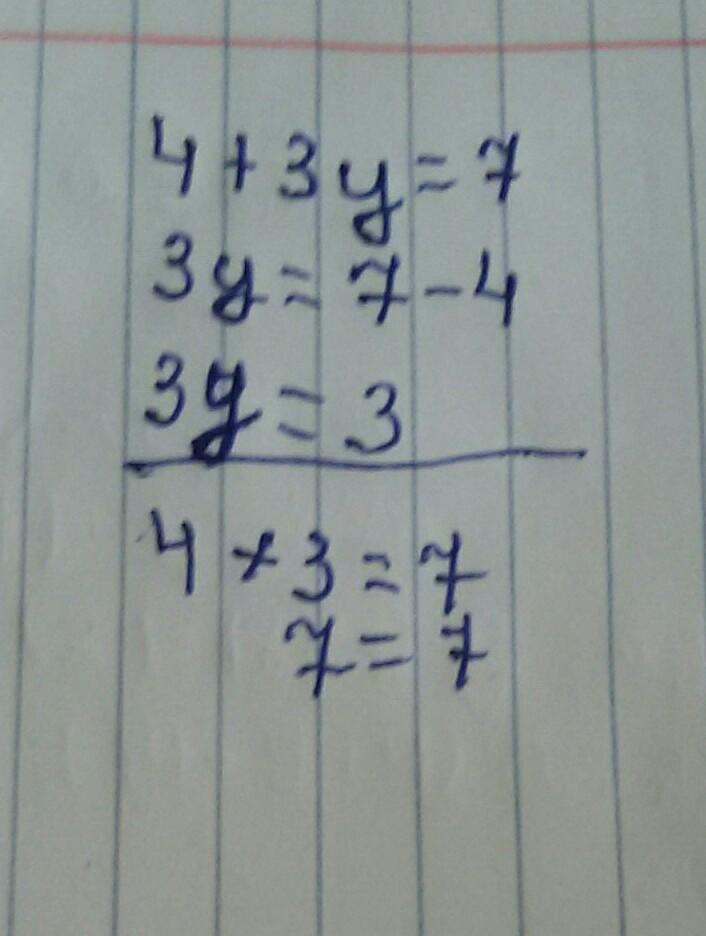 4 + 3y = 7
3y = 7 - 4
3y = 3
4 + 3 = 7
7 = 7